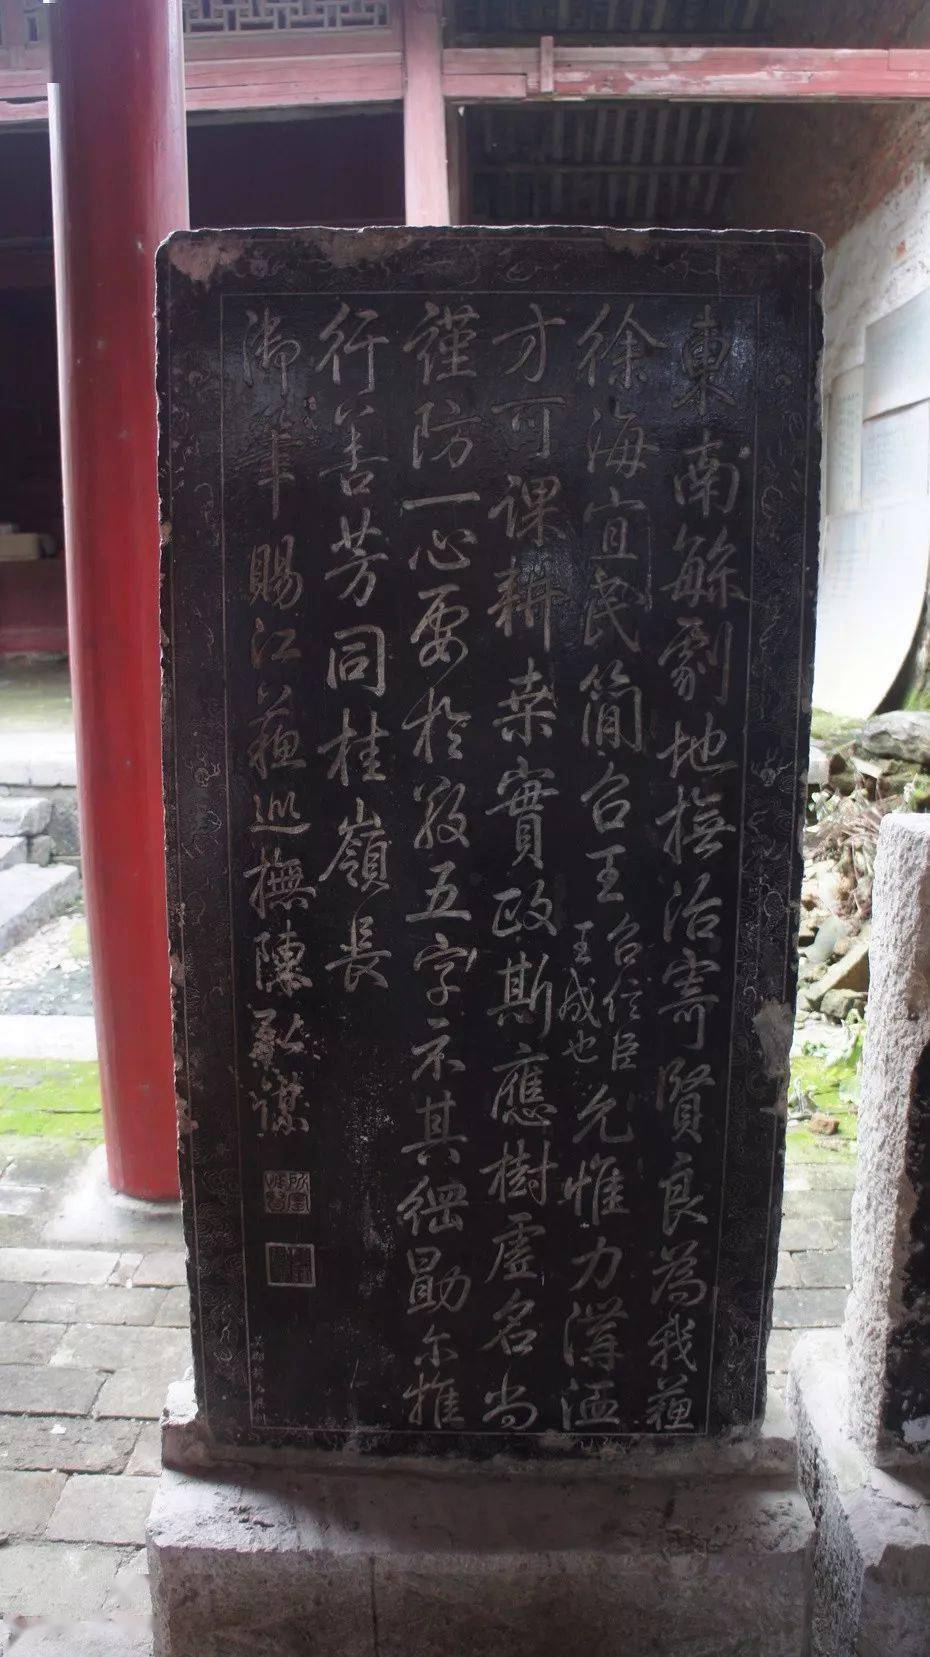 東南繇劇地撫治寄賢良為我蘇
徐海宜民簡召王召信臣王成也允惟力溝洫
才可課耕桒實政斯應樹虛名尚
謹防一心要於敬五字示其綱勖尓推
行善芳同桂嶺長
御筆賜江蘇巡撫陳弘謀